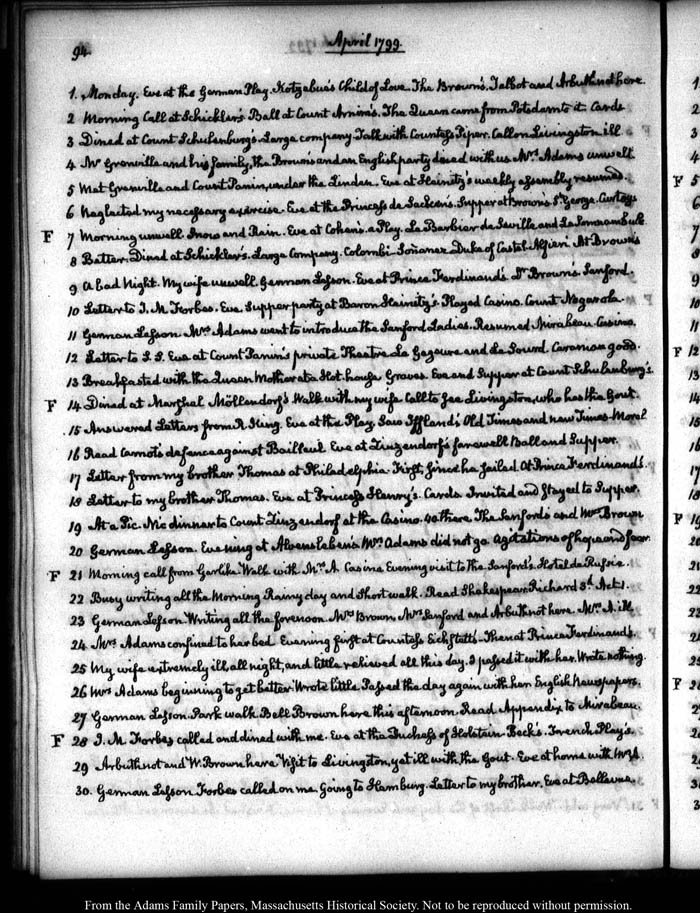 94
April 1799.
1. Monday. Eve at the German Play. Kotzebue's Child of Love. The Brown's, Talbot and Arbuthnot here.
2 Morning Call at Schickler's. Ball at Count Arnim's. The Queen came from Potsdam to it. Cards
3 Dined at Count Schulenburg's. Large company. Talk with Countess Piper. Call on Livingston ill
4 Mr Grenville and his family, the Browns and an English party dined with us. Mrs Adams unwell
5 Met Grenville and Count Panin, under the Linden. Eve at Heinitz's weekly assembly resumed.
6 Neglected my necessary exercise. Eve at the Princess de Sacken's. Supper at Brown's. St. George. Curtoys
F 7 Morning unwell. Snow and Rain. Eve at Cohen's. a Play. Le Barbier de Seville and La Somnambule.
8 Better. Dined at Schickler's. Large Company. Colombi. Soñanez Duke of Castel-Alfieri. At Brown's
9 A bad Night. My wife unwell. German Lesson. Eve at Prince Ferdinand's. Dr Brown's. Sanford.
10 Letter to J. M. Forbes. Eve. Supper party at Baron Heinitz's. Played Casino. Count Nogarola.
11 German Lesson. Mrs Adams went to introduce the Sanford Ladies. Resumed Mirabeau. Casino.
12 Letter to S. S. Eve at Count Panin's private Theatre. La Gageure and Le Sourd. Caraman good.
13 Breakfasted with the Queen Mother at a Hot-house. Graves. Eve and Supper at Count Schulenburg's
F 14 Dined at Marshal Möllendorf's Walk with my wife. Call to see Livingston, who has the Gout.
15 Answered Letters from R. King. Eve at the Play. Saw Iffland's Old Times and new Times. Moral
16 Read Carnot's defence against Bailleul. Eve at Zinzendorf's farewell Ball and Supper.
17 Letter from my brother Thomas at Philadelphia. First, since he sailed. At Prince Ferdinand's.
18 Letter to my brother Thomas. Eve at Princess Henry's. Cards. Invited and stayed to Supper.
19 At a Pic-Nic dinner to Count Zinzendorf at the Casino. 40 there. The Sanfords and Mrs Brown
20 German Lesson. Evening at Alvensleben's. Mrs Adams did not go. Agitations of hope and fear
F 21 Morning call from Garlike. Walk with Mrs A. Casino Evening visit to the Sanford's. Hotel de Russie.
22 Busy writing all the Morning. Rainy day and short walk. Read Shakespear. Richard 3d. Act. 1.
23 German Lesson. Writing all the forenoon. Mrs Brown, Mrs Sanford and Arbuthnot here. Mrs A. ill
24 Mrs Adams confined to her bed. Evening first at Countess Eichstedt's. Then at Prince Ferdinand's.
25 My wife extremely ill all night, and little relieved all this day. I passed it with her. Wrote nothing
26 Mrs Adams beginning to get better. Wrote little. Passed the day again with her. English Newspapers.
27 German Lesson. Park walk. Bell Brown here this afternoon. Read Appendix to Mirabeau.
F 28 J. M. Forbes called and dined with me. Eve at the Duchess of Holstein-Beck's. French Play's.
29 Arbuthnot and W. Brown here. Visit to Livingston, yet ill with the Gout. Eve at home with
30. German Lesson. Forbes called on me. going to Hamburg. Letter to my brother. Eve at Bellevue.
From the Adams Family Papers, Massachusetts Historical Society. Not to be reproduced without permission.